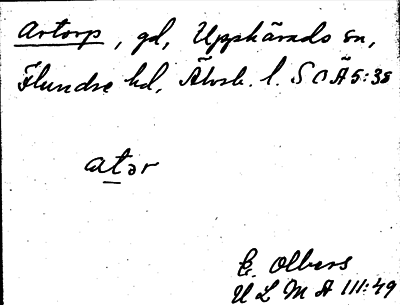 Artorp, gd, Upphärads sn,
Flundre hd, Älvsb. l. S O Ä 5:35
atər
E. Olbers
U L M A 111:49